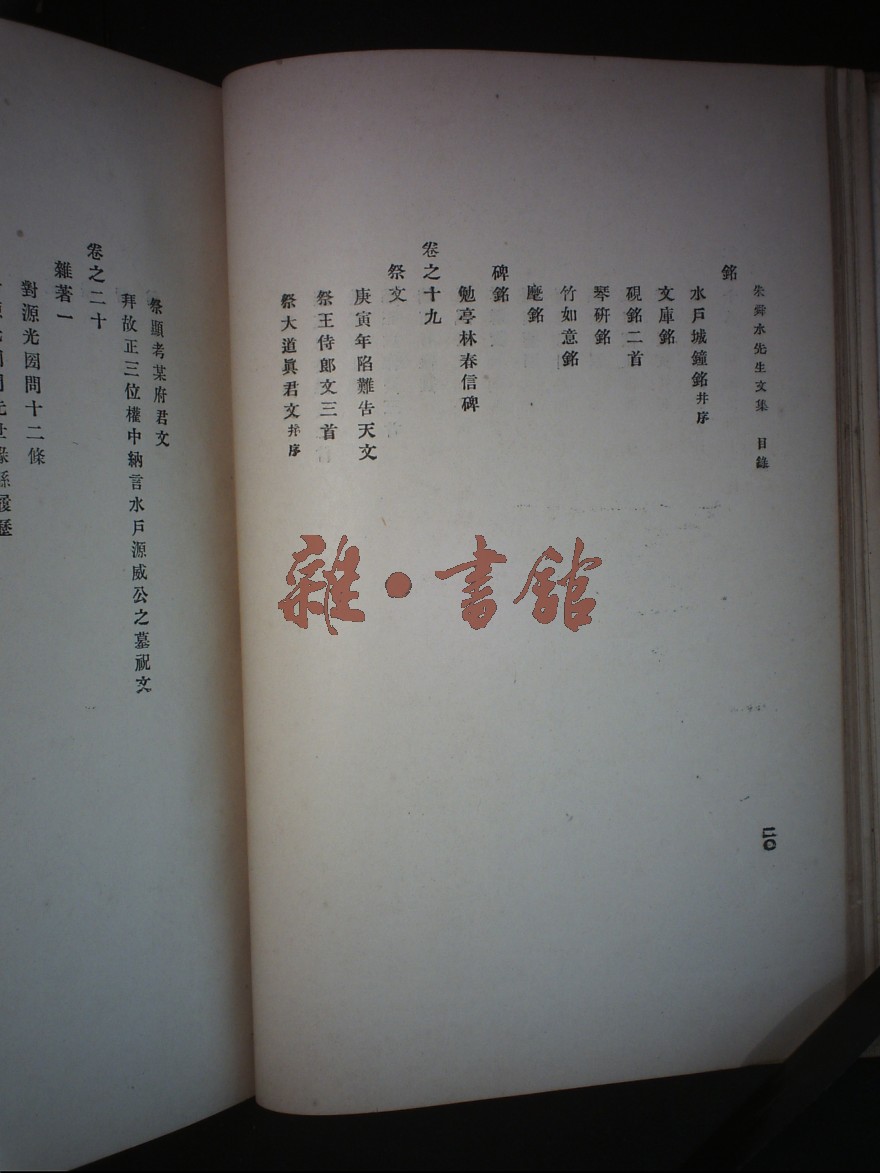 朱舜水先生文集 目錄
銘
水戶城鐘銘并序
文庫銘
硯銘二首
琴硏銘
竹如意銘
麾銘
碑銘
勉亭林春信碑
卷之十九
祭文
庚寅年陷難告天文
祭王侍郎文三首
祭大道眞君文并序
二〇
雜·書館
祭顯考某府君文
拜故正三位權中納言水戶源威公之墓祝文
卷之二十
雜著一
對源光圀問十二條